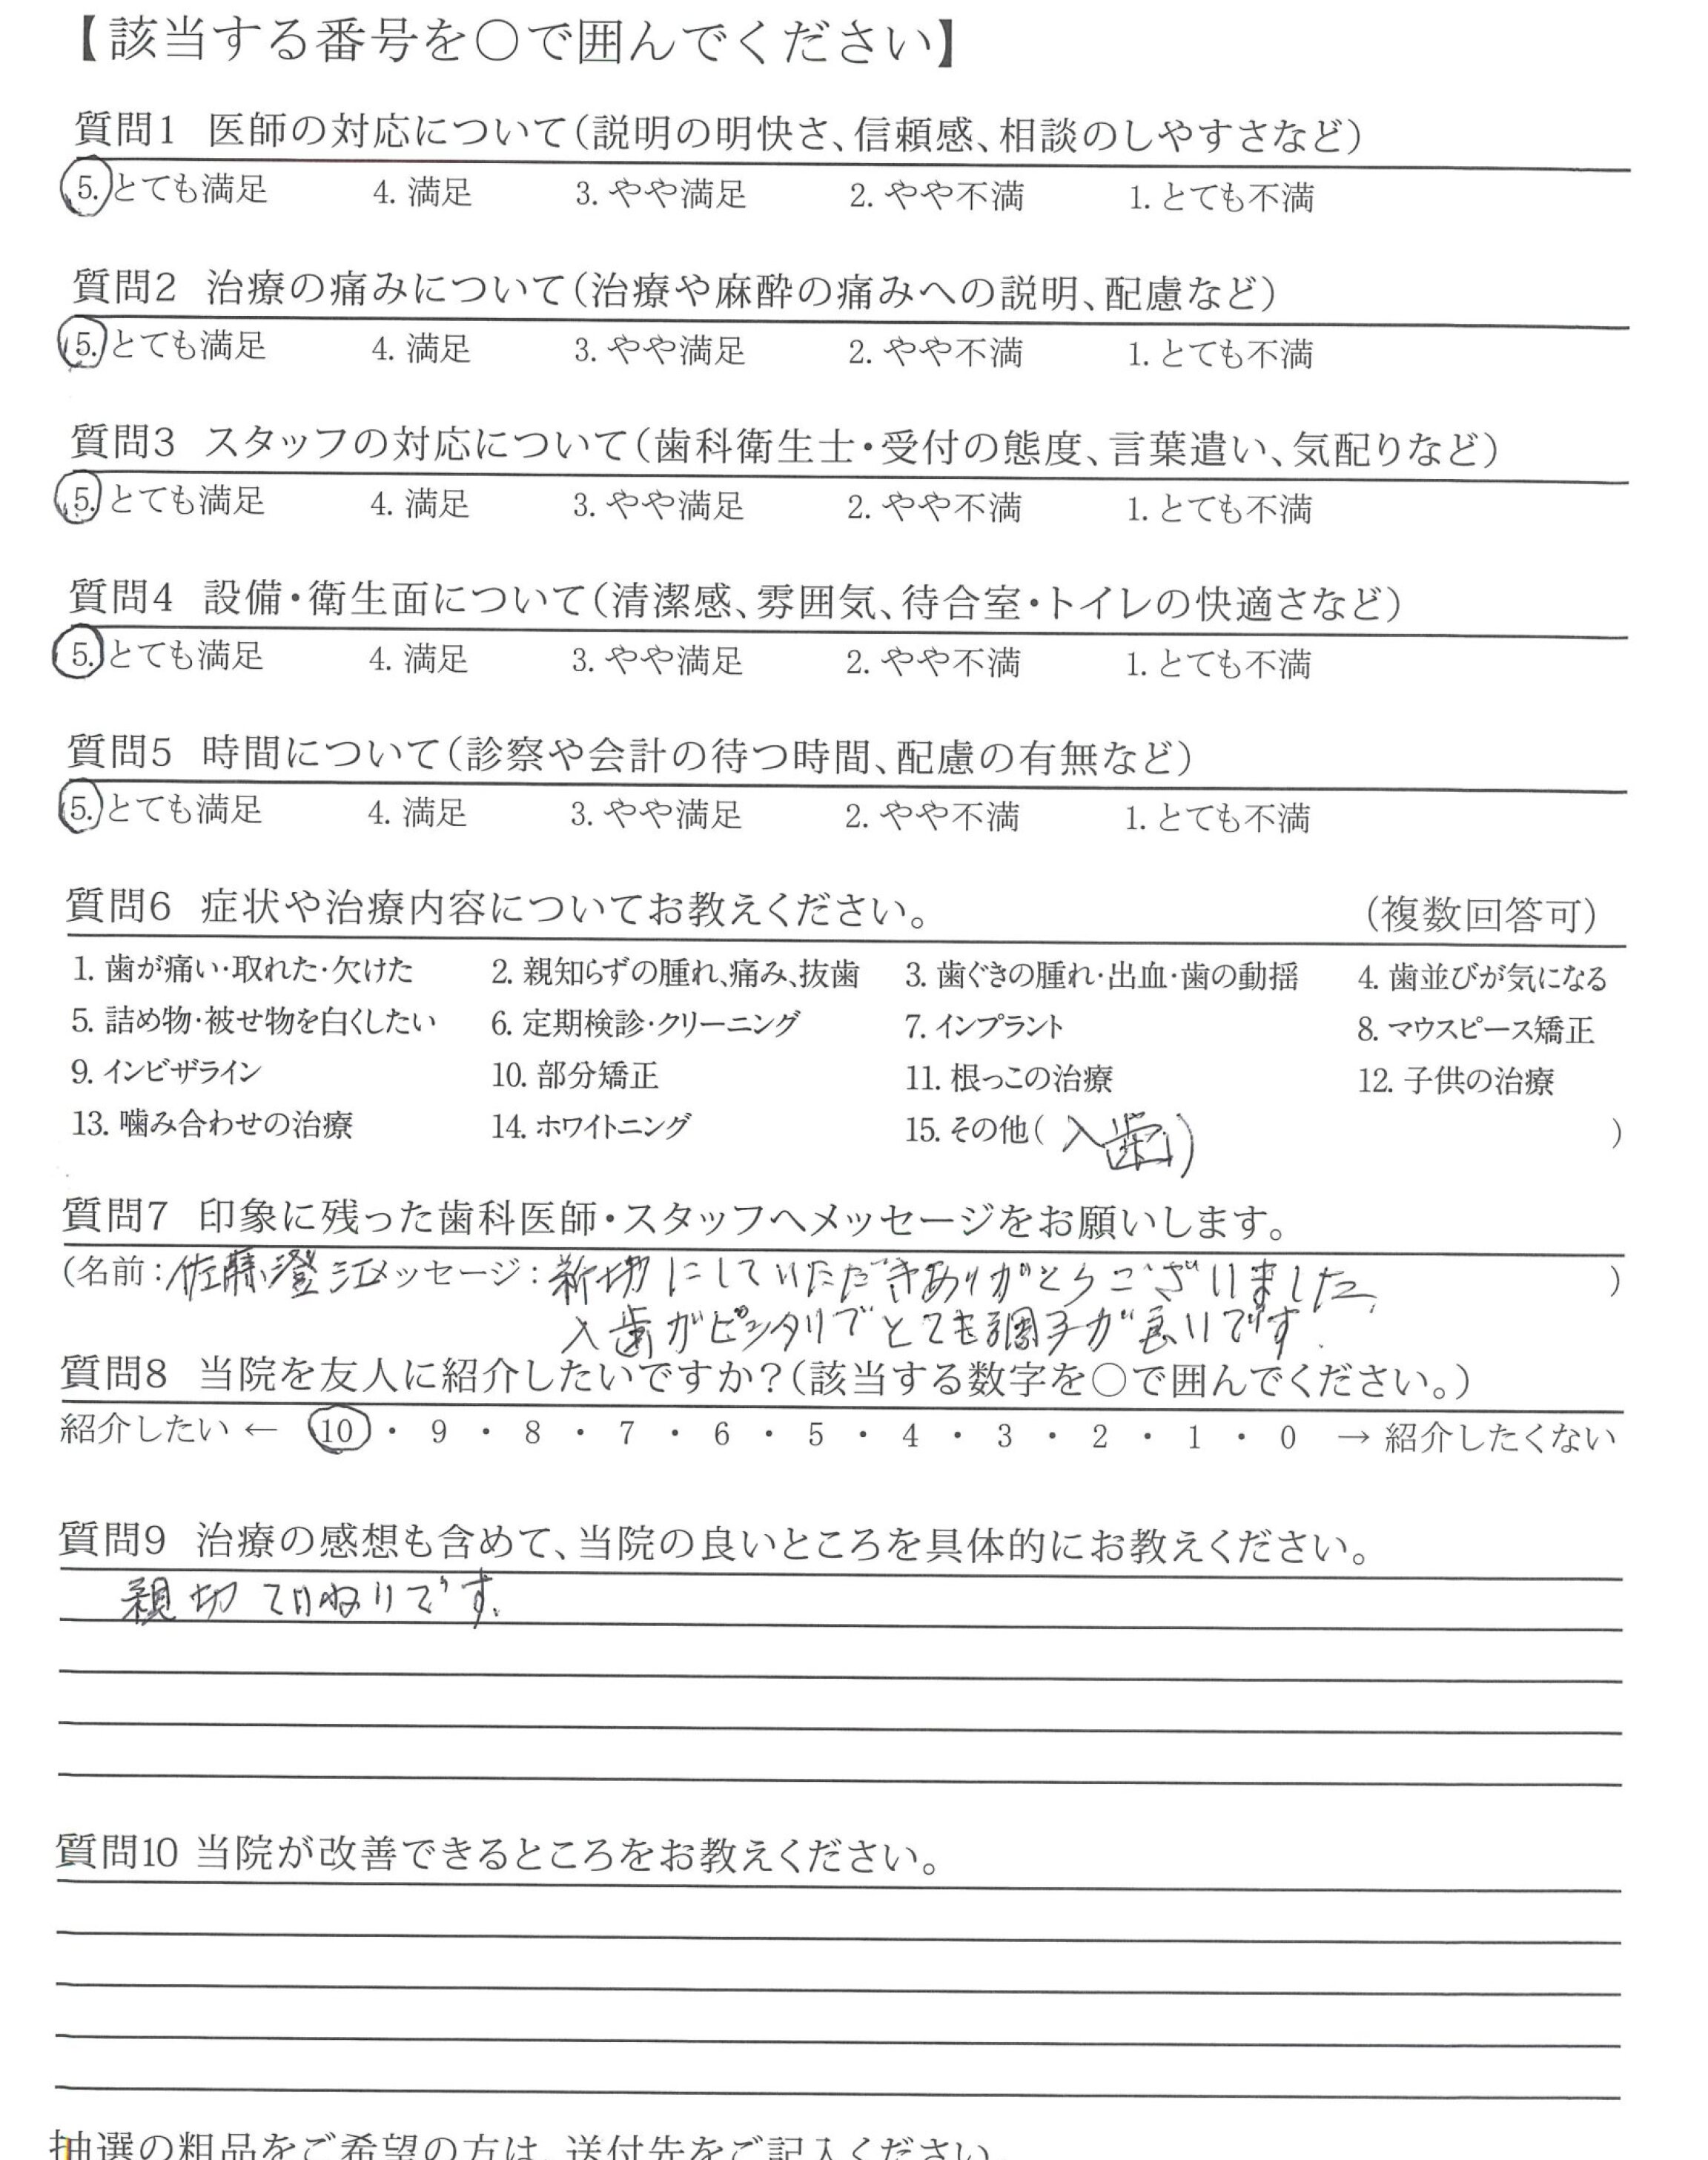 【該当する番号を○で囲んでください】
質問1 医師の対応について(説明の明快さ、信頼感、相談のしやすさなど)
5. とても満足 4. 満足 3. やや満足 2. やや不満 1. とても不満
質問2 治療の痛みについて(治療や麻酔の痛みへの説明、配慮など)
5. とても満足 4. 満足 3. やや満足 2. やや不満 1. とても不満
質問3 スタッフの対応について(歯科衛生士・受付の態度、言葉遣い、気配りなど)
5. とても満足 4. 満足 3. やや満足 2. やや不満 1. とても不満
質問4 設備・衛生面について(清潔感、雰囲気、待合室・トイレの快適さなど)
5. とても満足 4. 満足 3. やや満足 2. やや不満 1. とても不満
質問5 時間について(診察や会計の待つ時間、配慮の有無など)
5. とても満足 4. 満足 3. やや満足 2. やや不満 1. とても不満
質問6 症状や治療内容についてお教えください。 (複数回答可)
1. 歯が痛い・取れた・欠けた 2. 親知らずの腫れ、痛み、抜歯 3. 歯ぐきの腫れ・出血・歯の動揺 4. 歯並びが気になる
5. 詰め物・被せ物を白くしたい 6. 定期検診・クリーニング 7. インプラント 8. マウスピース矯正
9. インビザライン 10. 部分矯正 11. 根っこの治療 12. 子供の治療
13. 噛み合わせの治療 14. ホワイトニング 15. その他( 入歯) )
質問7 印象に残った歯科医師・スタッフへメッセージをお願いします。
(名前:佐藤澄江メッセージ:親切にしていただきありがとうございました。 )
入歯がピッタリでとても調子が良いです.
質問8 当院を友人に紹介したいですか?(該当する数字を○で囲んでください。)
紹介したい ← 10 ・ 9 ・ 8 ・ 7 ・ 6 ・ 5 ・ 4 ・ 3 ・ 2 ・ 1 ・ 0 → 紹介したくない
質問9 治療の感想も含めて、当院の良いところを具体的にお教えください。
親切ていねいです.
質問10 当院が改善できるところをお教えください。
抽選の粗品をご希望の方は、送付先をご記入ください。